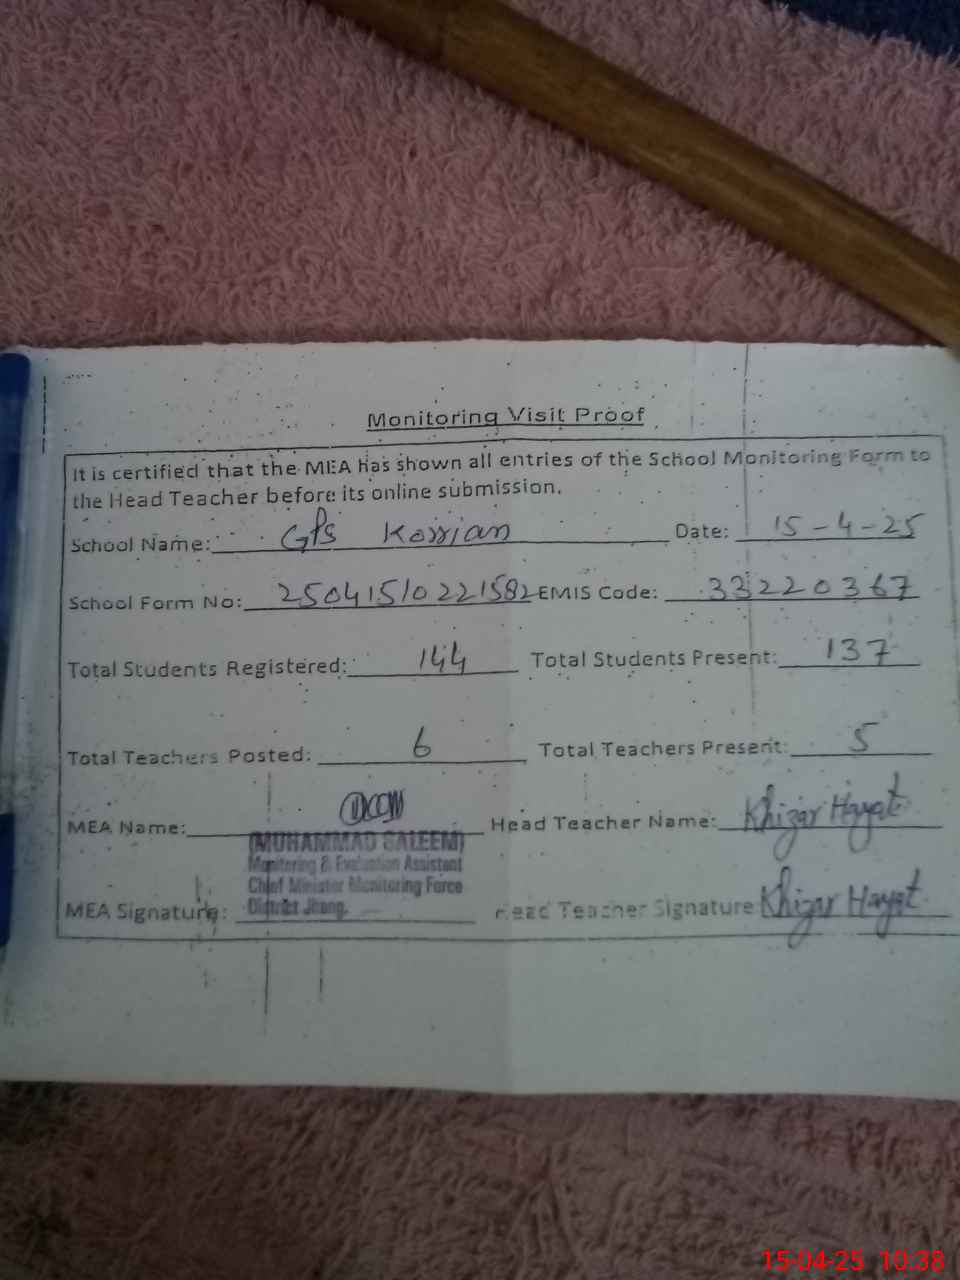 Monitoring Visit Proof
It is certified that the MEA has shown all entries of the School Monitoring Form to
the Head Teacher before its online submission.
School Name: GPS Korrian Date: 15-4-25
School Form No: 25041510221582 EMIS Code: 33220367
Total Students Registered: 144 Total Students Present: 137
Total Teachers Posted: 6 Total Teachers Present: 5
MEA Name: Head Teacher Name: Khizar Hayat
(MUHAMMAD SALEEM)
Monitoring & Evaluation Assistant
Chief Minister Monitoring Force
District Jhang.
MEA Signature: Head Teacher Signature Khizar Hayat
15-04-25 10:38